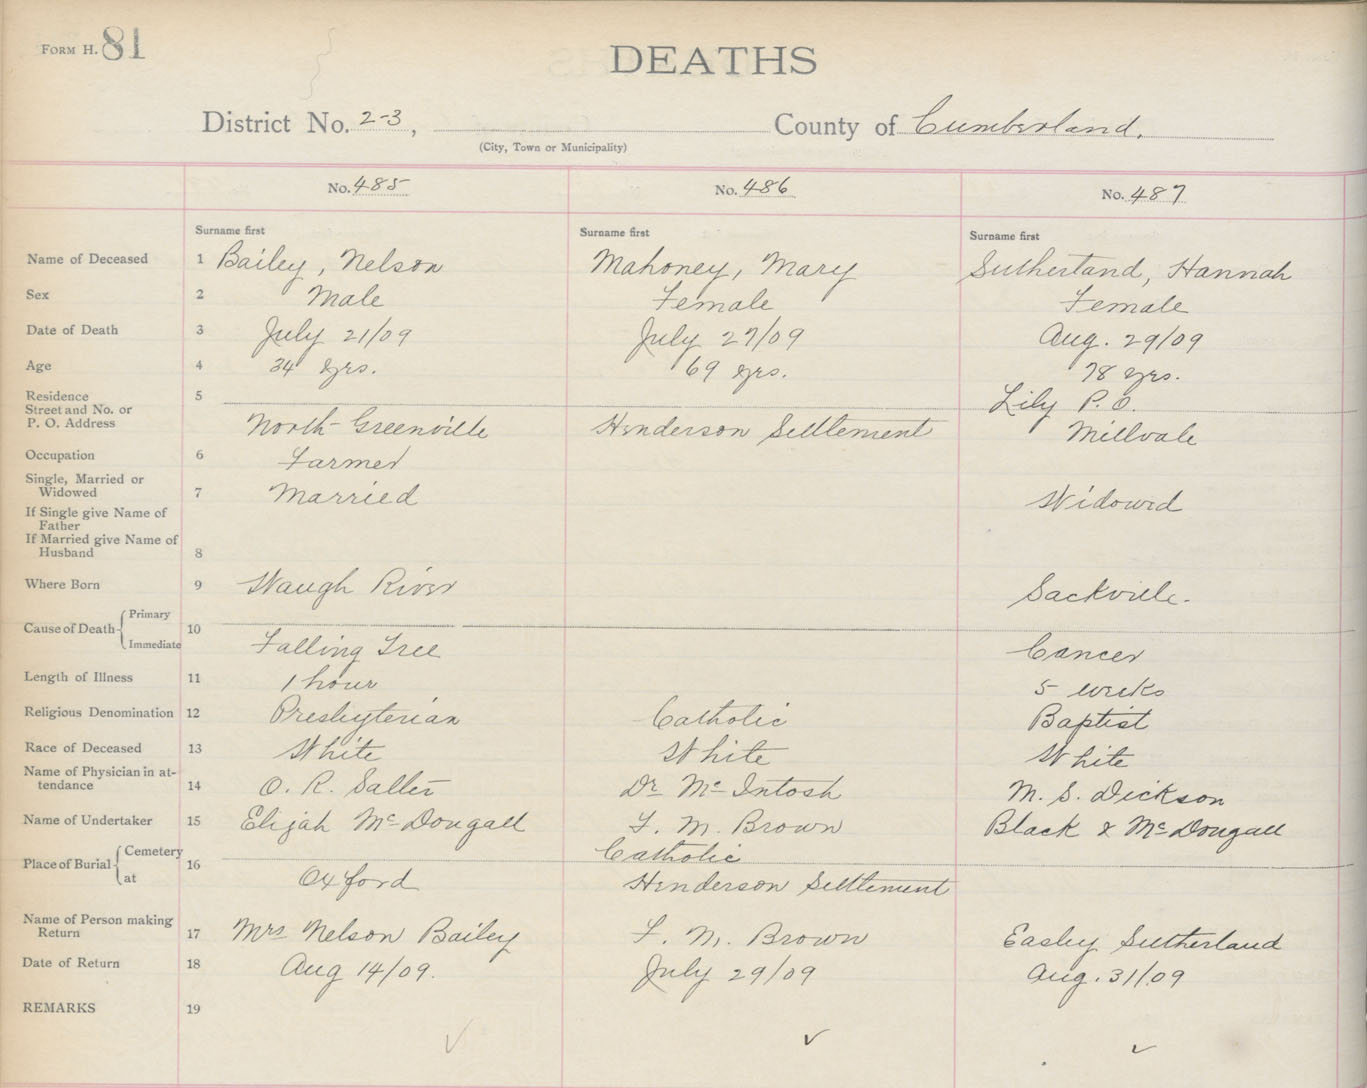 FORM H. 81
DEATHS
District No. 2-3, County of Cumberland.
(City, Town or Municipality)
No. 485 No. 486 No. 487
Surname first Surname first Surname first
Name of Deceased 1 Bailey, Nelson Mahoney, Mary Sutherland, Hannah
Sex 2 Male Female Female
Date of Death 3 July 21/09 July 27/09 Aug. 29/09
Age 4 34 yrs. 69 yrs. 78 yrs.
Residence 5 Lily P.O.
Street and No. or
P. O. Address North Greenville Henderson Settlement Millvale
Occupation 6 Farmer
Single, Married or
Widowed 7 Married Widowed
If Single give Name of
Father
If Married give Name of
Husband 8
Where Born 9 Waugh River Sackville.
Cause of Death 10 Primary
Immediate Falling Tree Cancer
Length of Illness 11 1 hour 5 weeks
Religious Denomination 12 Presbyterian Catholic Baptist
Race of Deceased 13 White White White
Name of Physician in at-
tendance 14 O. R. Salter Dr McIntosh M. S. Dickson
Name of Undertaker 15 Elijah McDougall F. M. Brown Black & McDougall
Place of Burial 16 Cemetery Catholic
at Oxford Henderson Settlement
Name of Person making
Return 17 Mrs Nelson Bailey F. M. Brown Easley Sutherland
Date of Return 18 Aug 14/09. July 29/09 Aug. 31/09
REMARKS 19